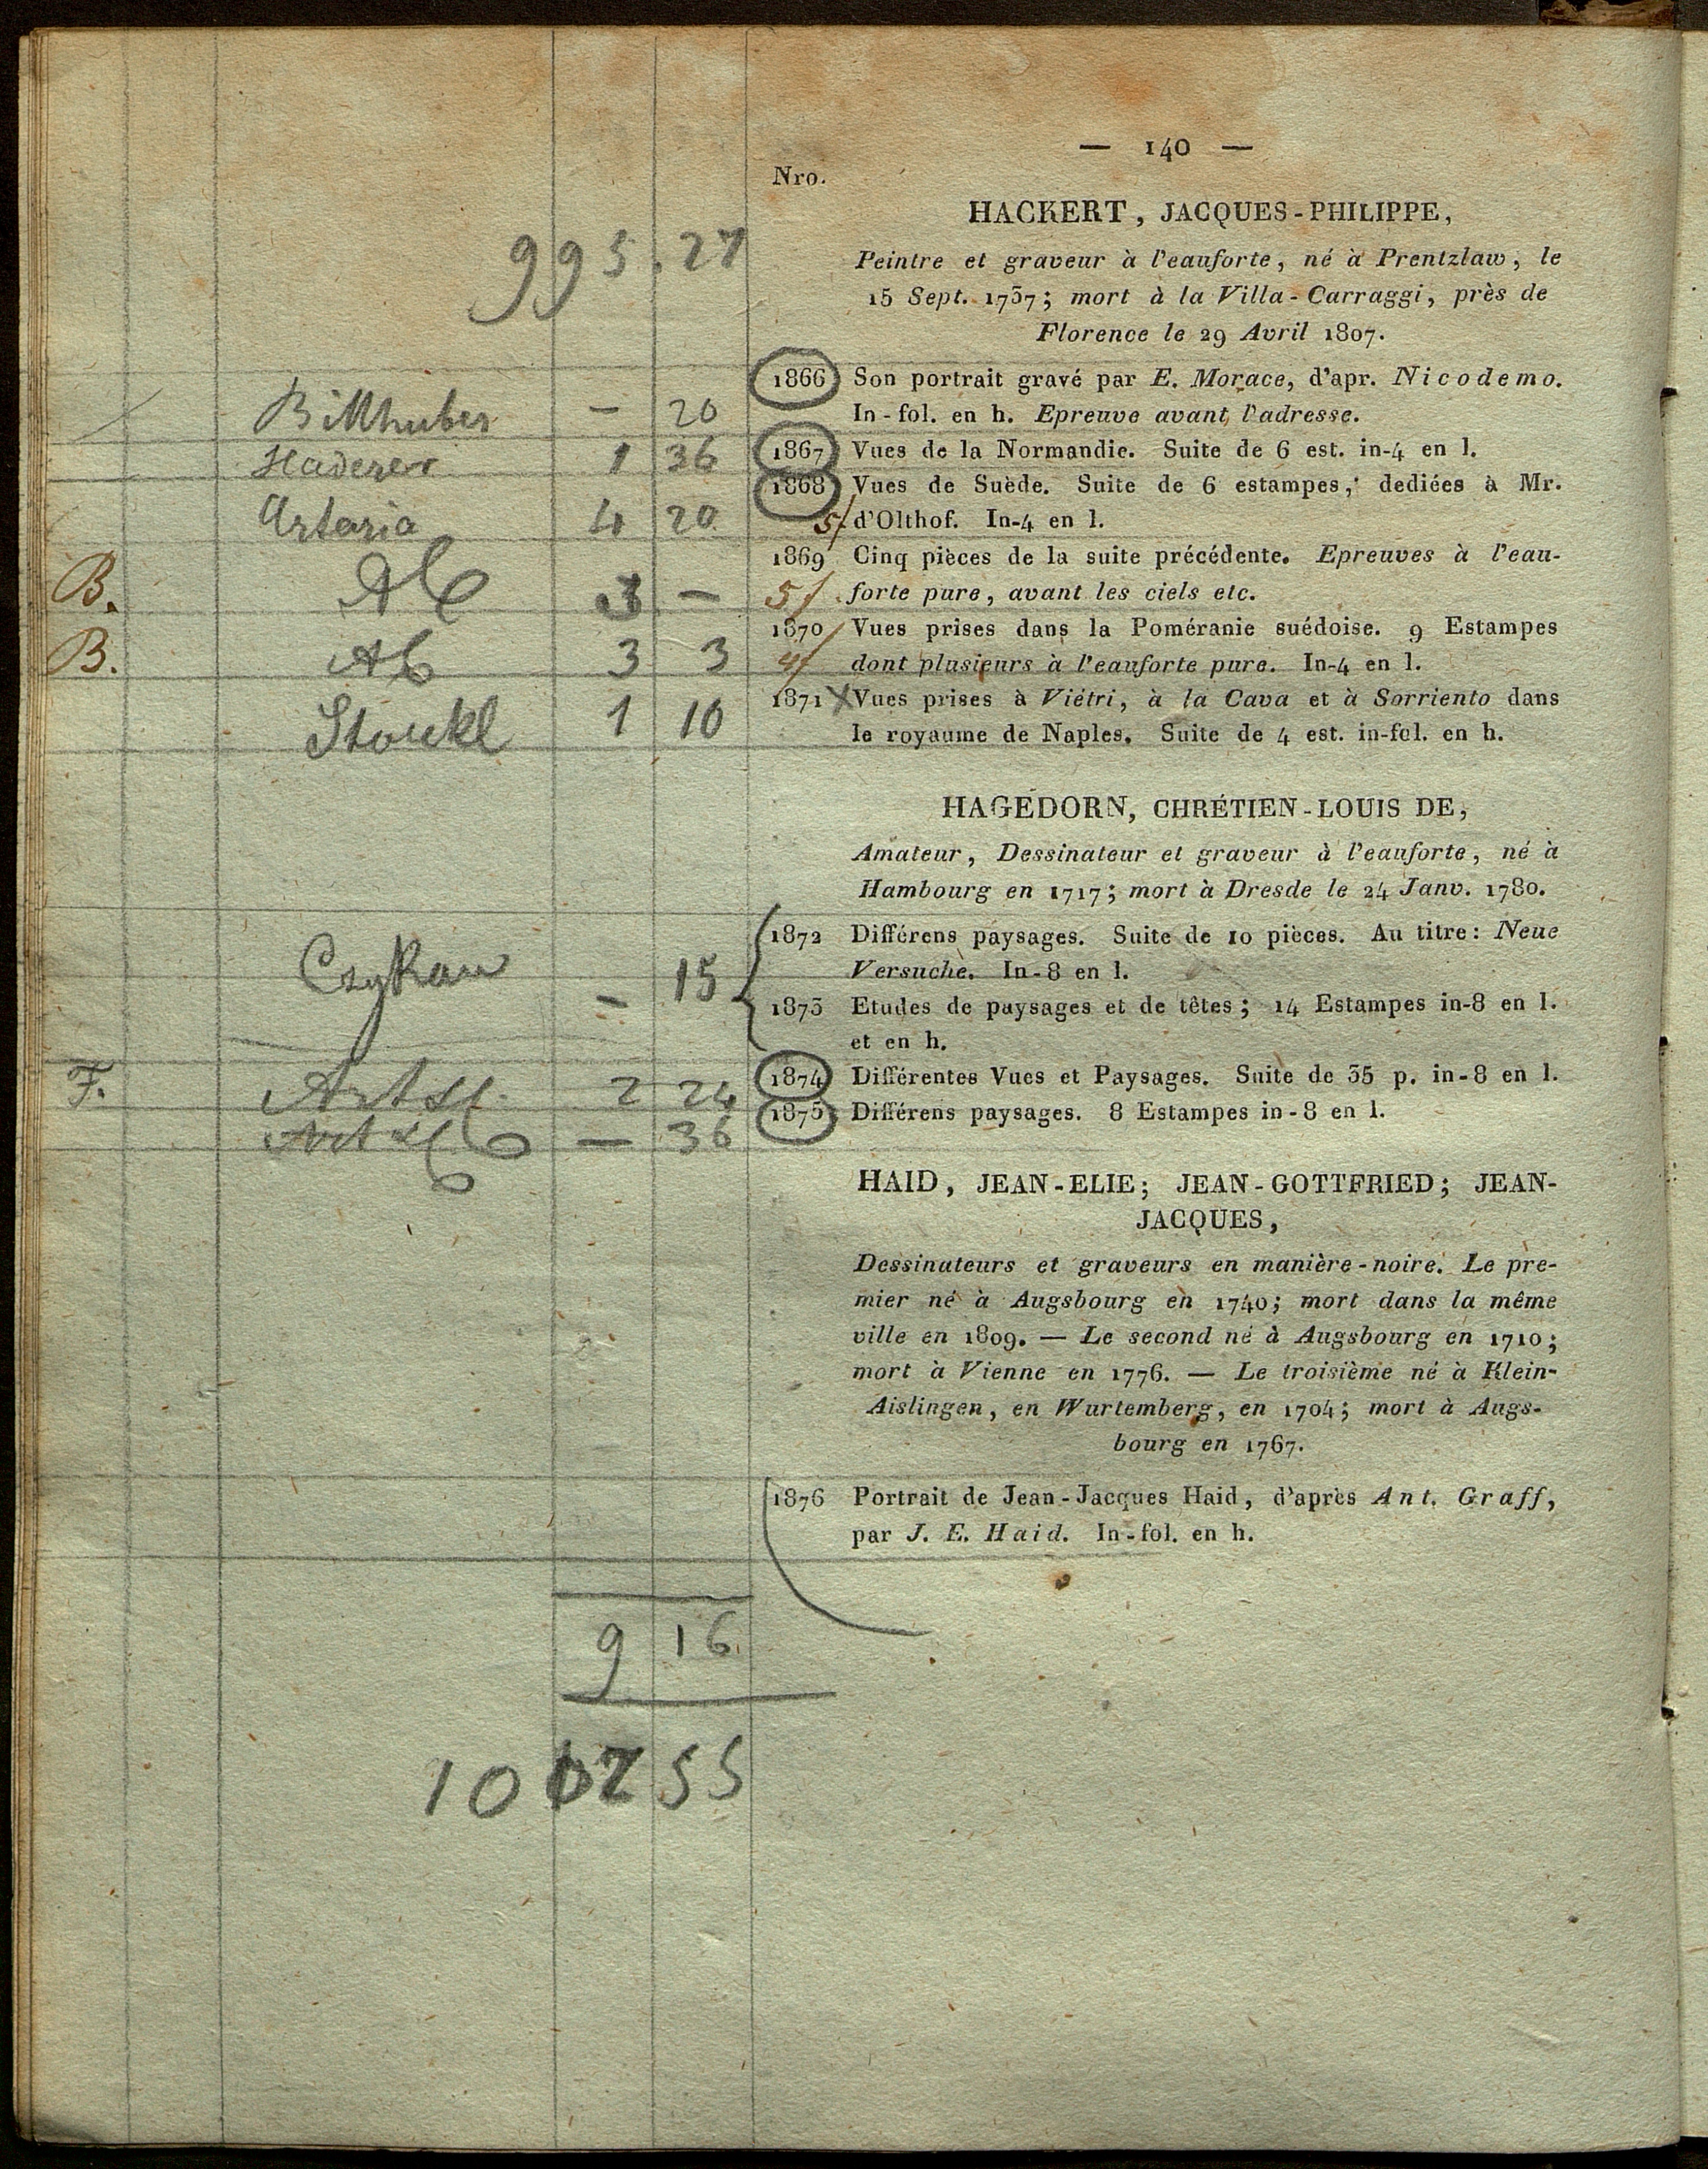 — 140 —
Nro.
995.27
HACKERT, JACQUES-PHILIPPE,
Peintre et graveur à l'eauforte, né à Prentzlaw, le
15 Sept. 1737; mort à la Villa-Carraggi, près de
Florence le 29 Avril 1807.
1866 Son portrait gravé par E. Morace, d'apr. Nicodemo.
Billhuber — 20 In-fol. en h. Epreuve avant l'adresse.
Haderer 1 36 1867 Vues de la Normandie. Suite de 6 est. in-4 en l.
1868 Vues de Suède. Suite de 6 estampes, dediées à Mr.
Artaria 4 20 5/ d'Olthof. In-4 en l.
1869 Cinq pièces de la suite précédente. Epreuves à l'eau-
B. 3 — 5/ forte pure, avant les ciels etc.
1870 Vues prises dans la Poméranie suédoise. 9 Estampes
B. 3 3 4/ dont plusieurs à l'eauforte pure. In-4 en l.
1871 X Vues prises à Viétri, à la Cava et à Sorriento dans
Stöckl 1 10 le royaume de Naples. Suite de 4 est. in-fol. en h.
HAGEDORN, CHRÉTIEN-LOUIS DE,
Amateur, Dessinateur et graveur à l'eauforte, né à
Hambourg en 1717; mort à Dresde le 24 Janv. 1780.
1872 Différens paysages. Suite de 10 pièces. Au titre: Neue
Versuche. In-8 en l.
— 15 1873 Etudes de paysages et de têtes; 14 Estampes in-8 en l.
et en h.
F. 2 24 1874 Différentes Vues et Paysages. Suite de 35 p. in-8 en l.
— 36 1875 Différens paysages. 8 Estampes in-8 en l.
HAID, JEAN-ELIE; JEAN-GOTTFRIED; JEAN-
JACQUES,
Dessinateurs et graveurs en manière-noire. Le pre-
mier né à Augsbourg en 1740; mort dans la même
ville en 1809. — Le second né à Augsbourg en 1710;
mort à Vienne en 1776. — Le troisième né à Klein-
Aislingen, en Wurtemberg, en 1704; mort à Augs-
bourg en 1767.
1876 Portrait de Jean-Jacques Haid, d'après Ant. Graff,
par J. E. Haid. In-fol. en h.
9 16